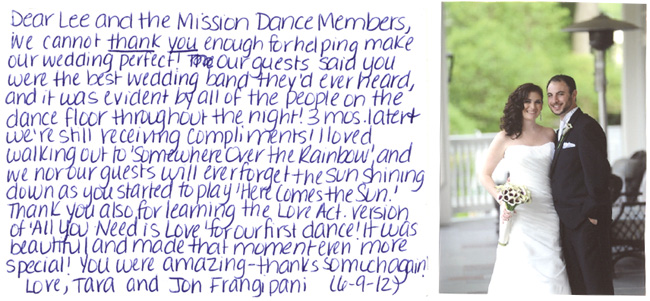 Dear Lee and the Mission Dance Members,
we cannot thank you enough for helping make
our wedding perfect! our guests said you
were the best wedding band they'd ever heard,
and it was evident by all of the people on the
dance floor throughout the night! 3 mos. later +
we're still receiving compliments! I loved
walking out to 'Somewhere Over the Rainbow', and
we nor our guests will ever forget the sun shining
down as you started to play 'Here Comes the Sun.'
Thank you also for learning the Love Act. version
of 'All You Need is Love' for our first dance! It was
beautiful and made that moment even more
special! You were amazing - thanks so much again!
Love, Tara and Jon Frangipani (6-9-12)